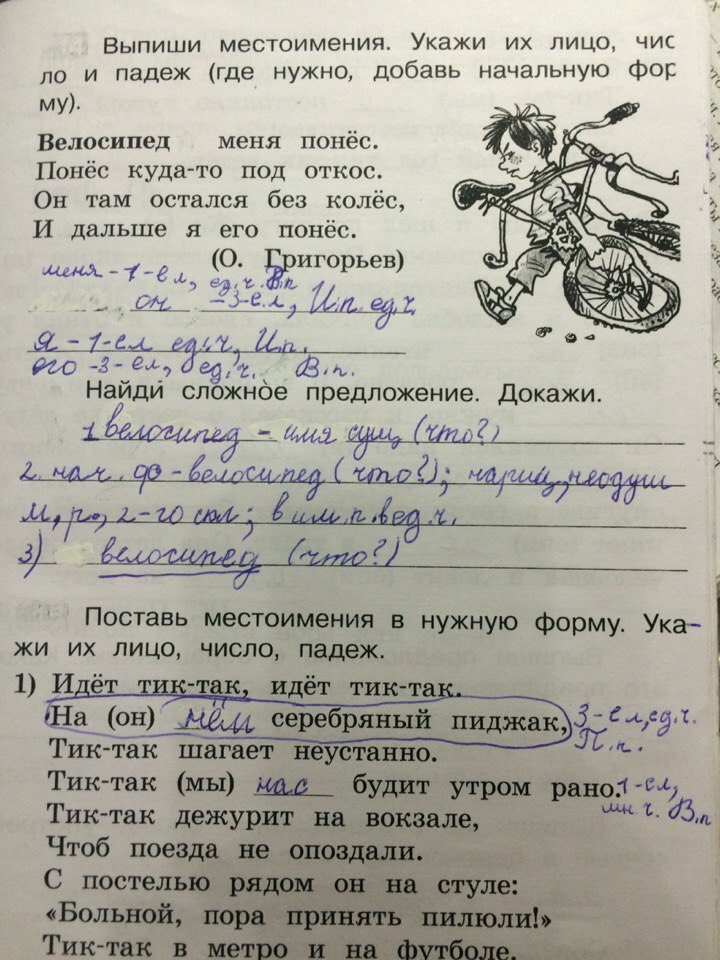 Выпиши местоимения. Укажи их лицо, чис
ло и падеж (где нужно, добавь начальную фор
му).
Велосипед меня понёс.
Понёс куда-то под откос.
Он там остался без колёс,
И дальше я его понёс.
(О. Григорьев)
меня - 1-е л, ед.ч. В.п
он - 3-е л, И.п. ед.ч.
я - 1-е л ед.ч, И.п.
его - 3-е л, ед.ч. В.п.
Найди сложное предложение. Докажи.
1 велосипед - имя сущ, (что?)
2. нач. ф - велосипед (что?); нариц, неодуш
м, р, 2-го скл; в им.п. в ед.ч.
3) велосипед (что?)
Поставь местоимения в нужную форму. Ука-
жи их лицо, число, падеж.
1) Идёт тик-так, идёт тик-так.
На (он) нём серебряный пиджак, 3-е л, ед.ч.
П.п.
Тик-так шагает неустанно.
Тик-так (мы) нас будит утром рано. 1-е л,
мн ч. В.п
Тик-так дежурит на вокзале,
Чтоб поезда не опоздали.
С постелью рядом он на стуле:
«Больной, пора принять пилюли!»
Тик-так в метро и на футболе.